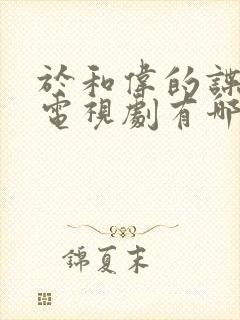 於和偉的諜
電視劇有哪
錦夏末